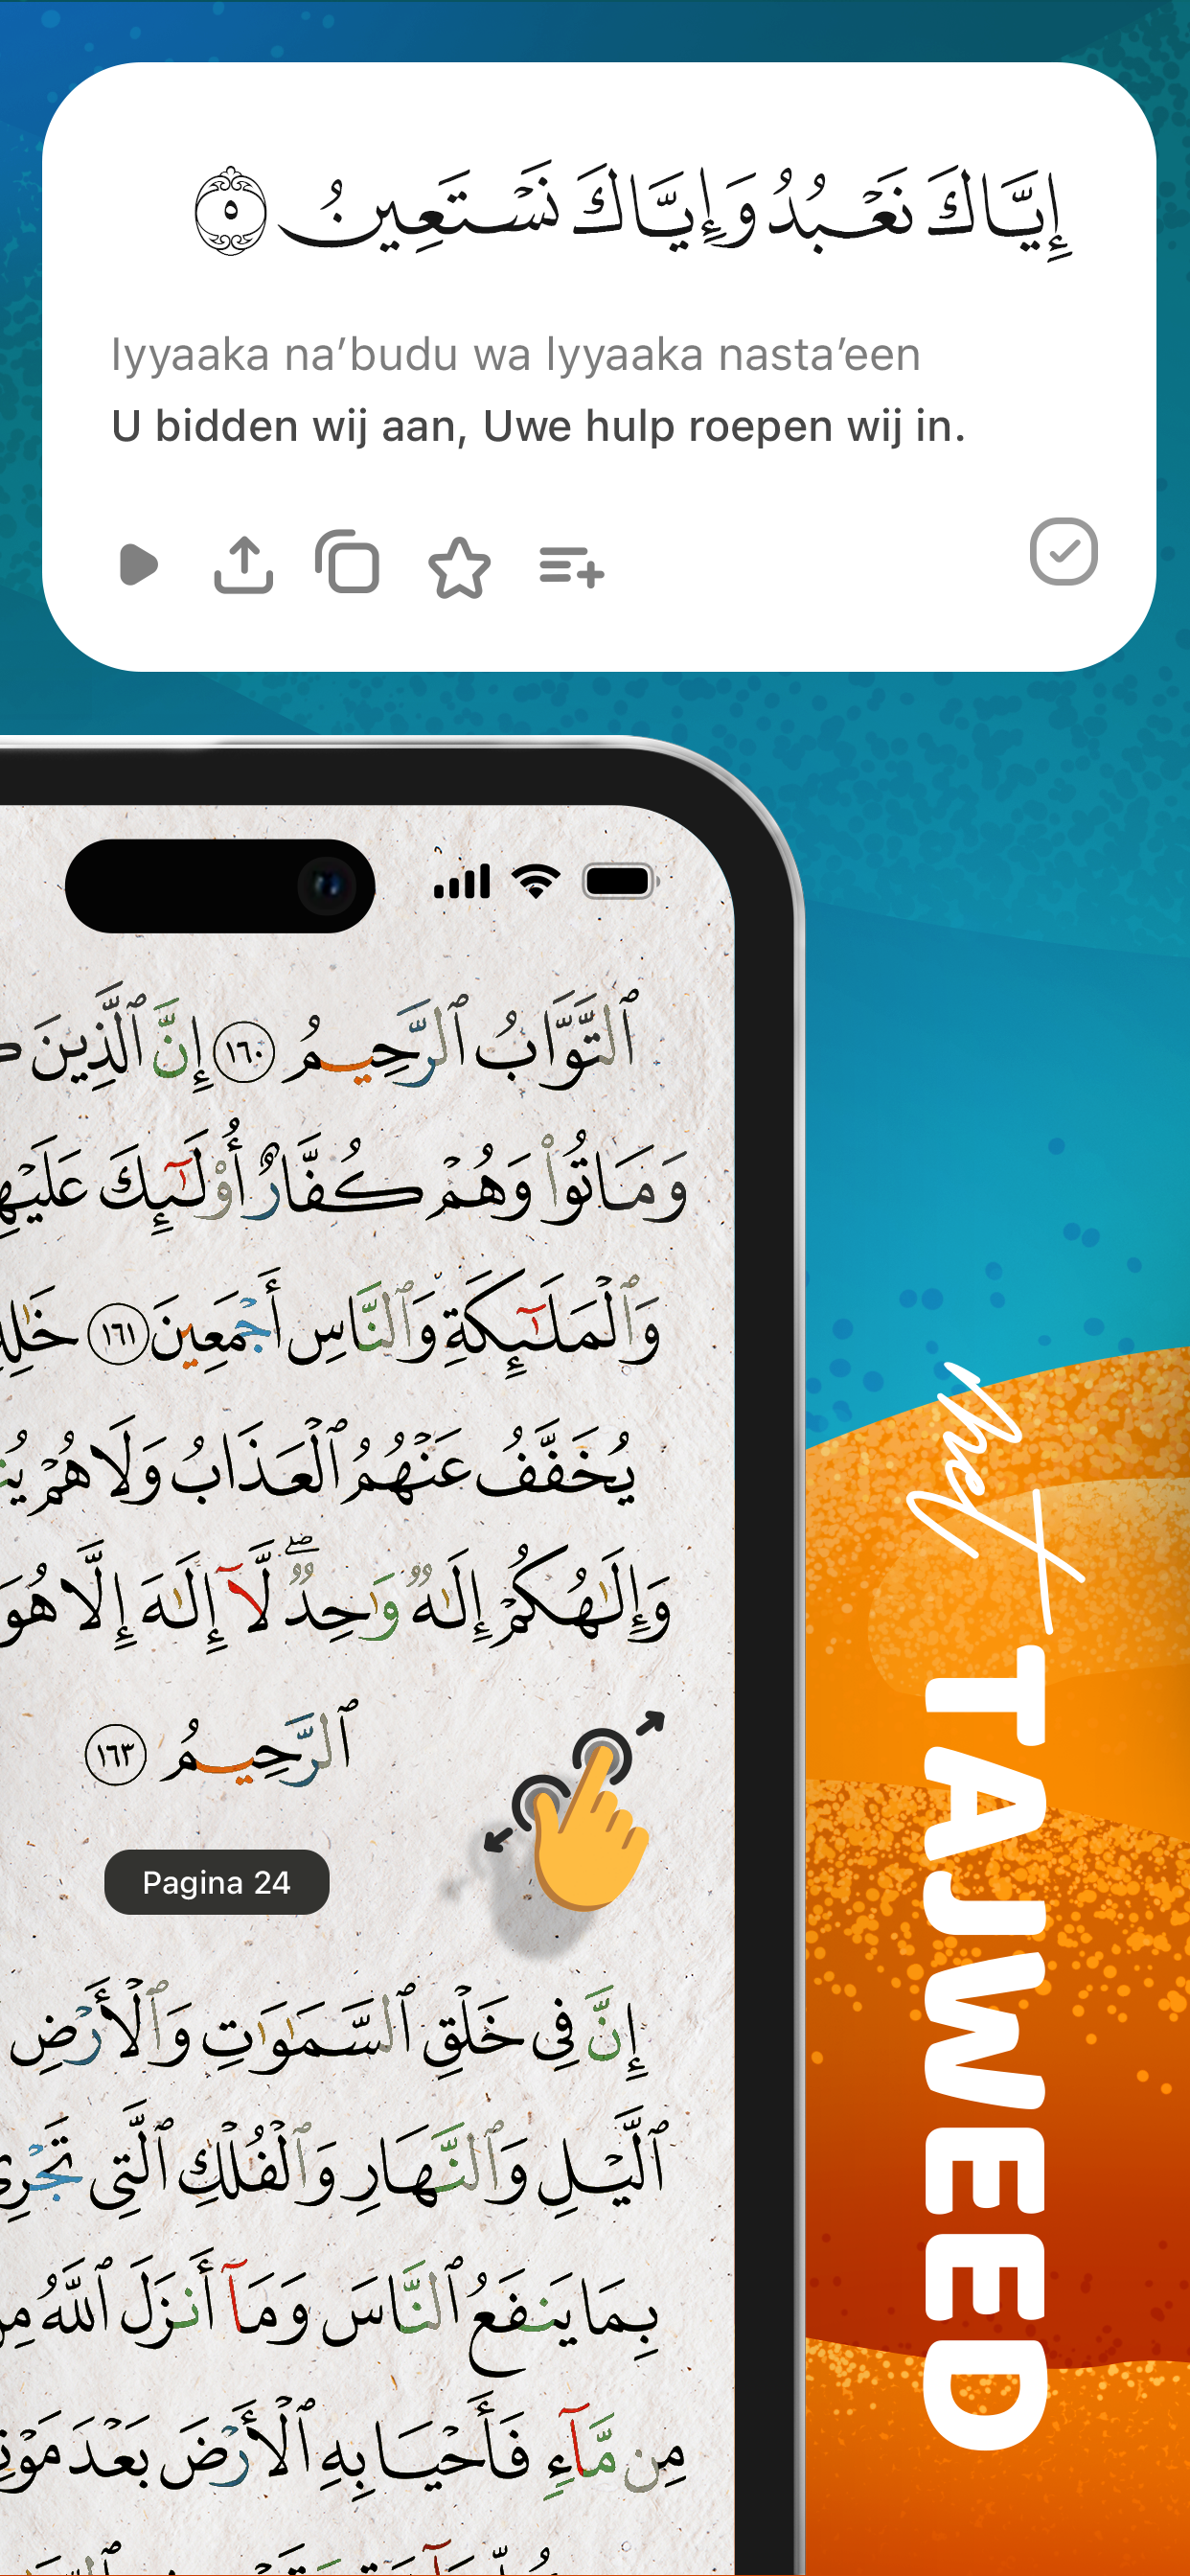 إِيَّاكَ نَعْبُدُ وَإِيَّاكَ نَسْتَعِينُ ٥
Iyyaaka na’budu wa Iyyaaka nasta’een
U bidden wij aan, Uwe hulp roepen wij in.
ٱلتَّوَّابُ ٱلرَّحِيمُ ١٦٠ إِنَّ ٱلَّذِينَ
وَمَاتُوا۟ وَهُمْ كُفَّارٌ أُو۟لَـٰٓئِكَ
وَٱلْمَلَـٰٓئِكَةِ وَٱلنَّاسِ أَجْمَعِينَ ١٦١
يُخَفَّفُ عَنْهُمُ ٱلْعَذَابُ وَلَا هُمْ
وَإِلَـٰهُكُمْ إِلَـٰهٌ وَٰحِدٌ ۖ لَّآ إِلَـٰهَ إِلَّا هُوَ
ٱلرَّحِيمُ ١٦٣
Pagina 24
إِنَّ فِى خَلْقِ ٱلسَّمَـٰوَٰتِ وَٱلْأَرْضِ
ٱلَّيْلِ وَٱلنَّهَارِ وَٱلْفُلْكِ ٱلَّتِى تَجْرِى
بِمَا يَنفَعُ ٱلنَّاسَ وَمَآ أَنزَلَ ٱللَّهُ
مِن مَّآءٍ فَأَحْيَا بِهِ ٱلْأَرْضَ بَعْدَ
Met TAJWEED